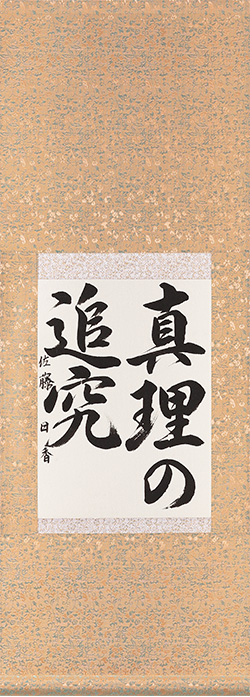 真理の
追究
佐藤日香